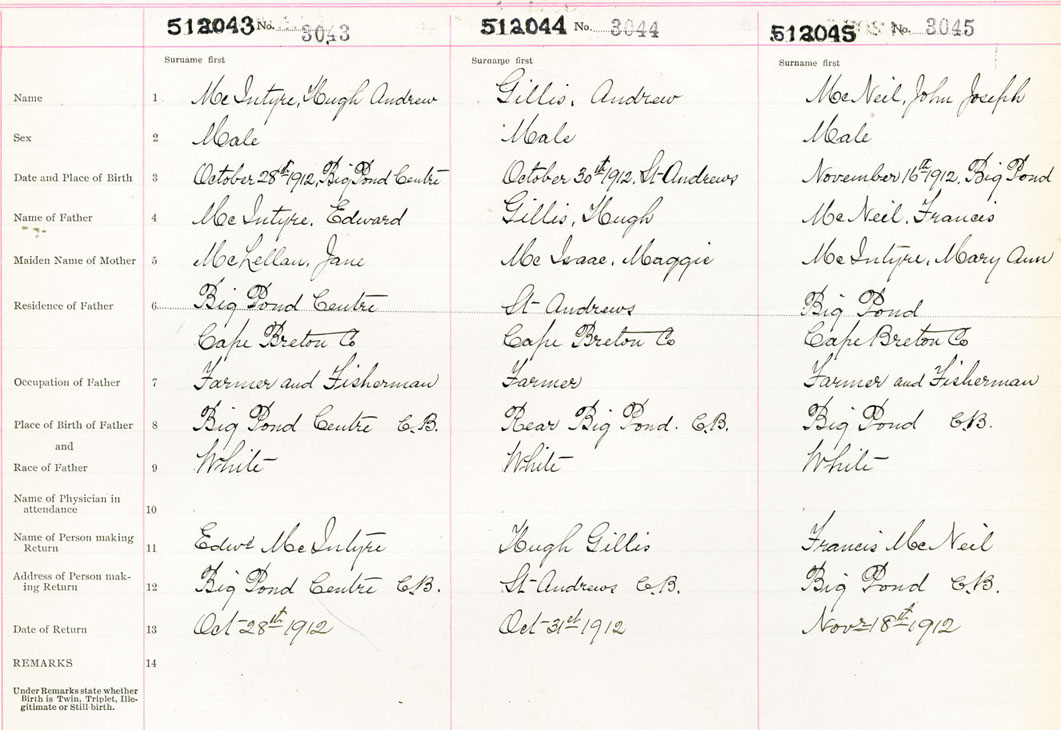 512043 No. 3043
512044 No. 3044
512045 No. 3045
Surname first
Surname first
Surname first
Name 1 McIntyre, Hugh Andrew Gillis, Andrew McNeil, John Joseph
Sex 2 Male Male Male
Date and Place of Birth 3 October 28th 1912, Big Pond Centre October 30th 1912, St Andrews November 16th 1912, Big Pond
Name of Father 4 McIntyre, Edward Gillis, Hugh McNeil, Francis
Maiden Name of Mother 5 McLellan, Jane McIsaac, Maggie McIntyre, Mary Ann
Residence of Father 6 Big Pond Centre St Andrews Big Pond
Cape Breton Co Cape Breton Co Cape Breton Co
Occupation of Father 7 Farmer and Fisherman Farmer Farmer and Fisherman
Place of Birth of Father 8 Big Pond Centre C.B. Rear Big Pond. C.B. Big Pond C.B.
and
Race of Father 9 White White White
Name of Physician in
attendance 10
Name of Person making
Return 11 Edwd McIntyre Hugh Gillis Francis McNeil
Address of Person mak-
ing Return 12 Big Pond Centre C.B. St Andrews C.B. Big Pond C.B.
Date of Return 13 Oct 28th 1912 Oct 31st 1912 Novr 18th 1912
REMARKS 14
Under Remarks state whether
Birth is Twin, Triplet, Ille-
gitimate or Still-birth.